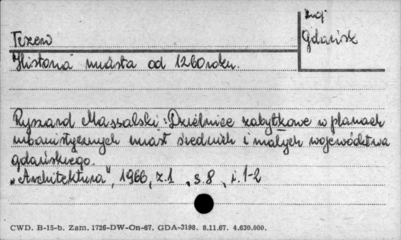 woj
Gdańsk
Tczew
Historia miasta od 1260 roku.
Ryszard Massalski: Dzielnice zabytkowe w planach
urbanistycznych miast średnich i małych województwa
gdańskiego.
„Architektura", 1966, z.1, s.8, i.1-2
CWD. B-15-b. Zam. 1726-DW-On-67. GDA-3198. 8.11.67. 4.630.000.